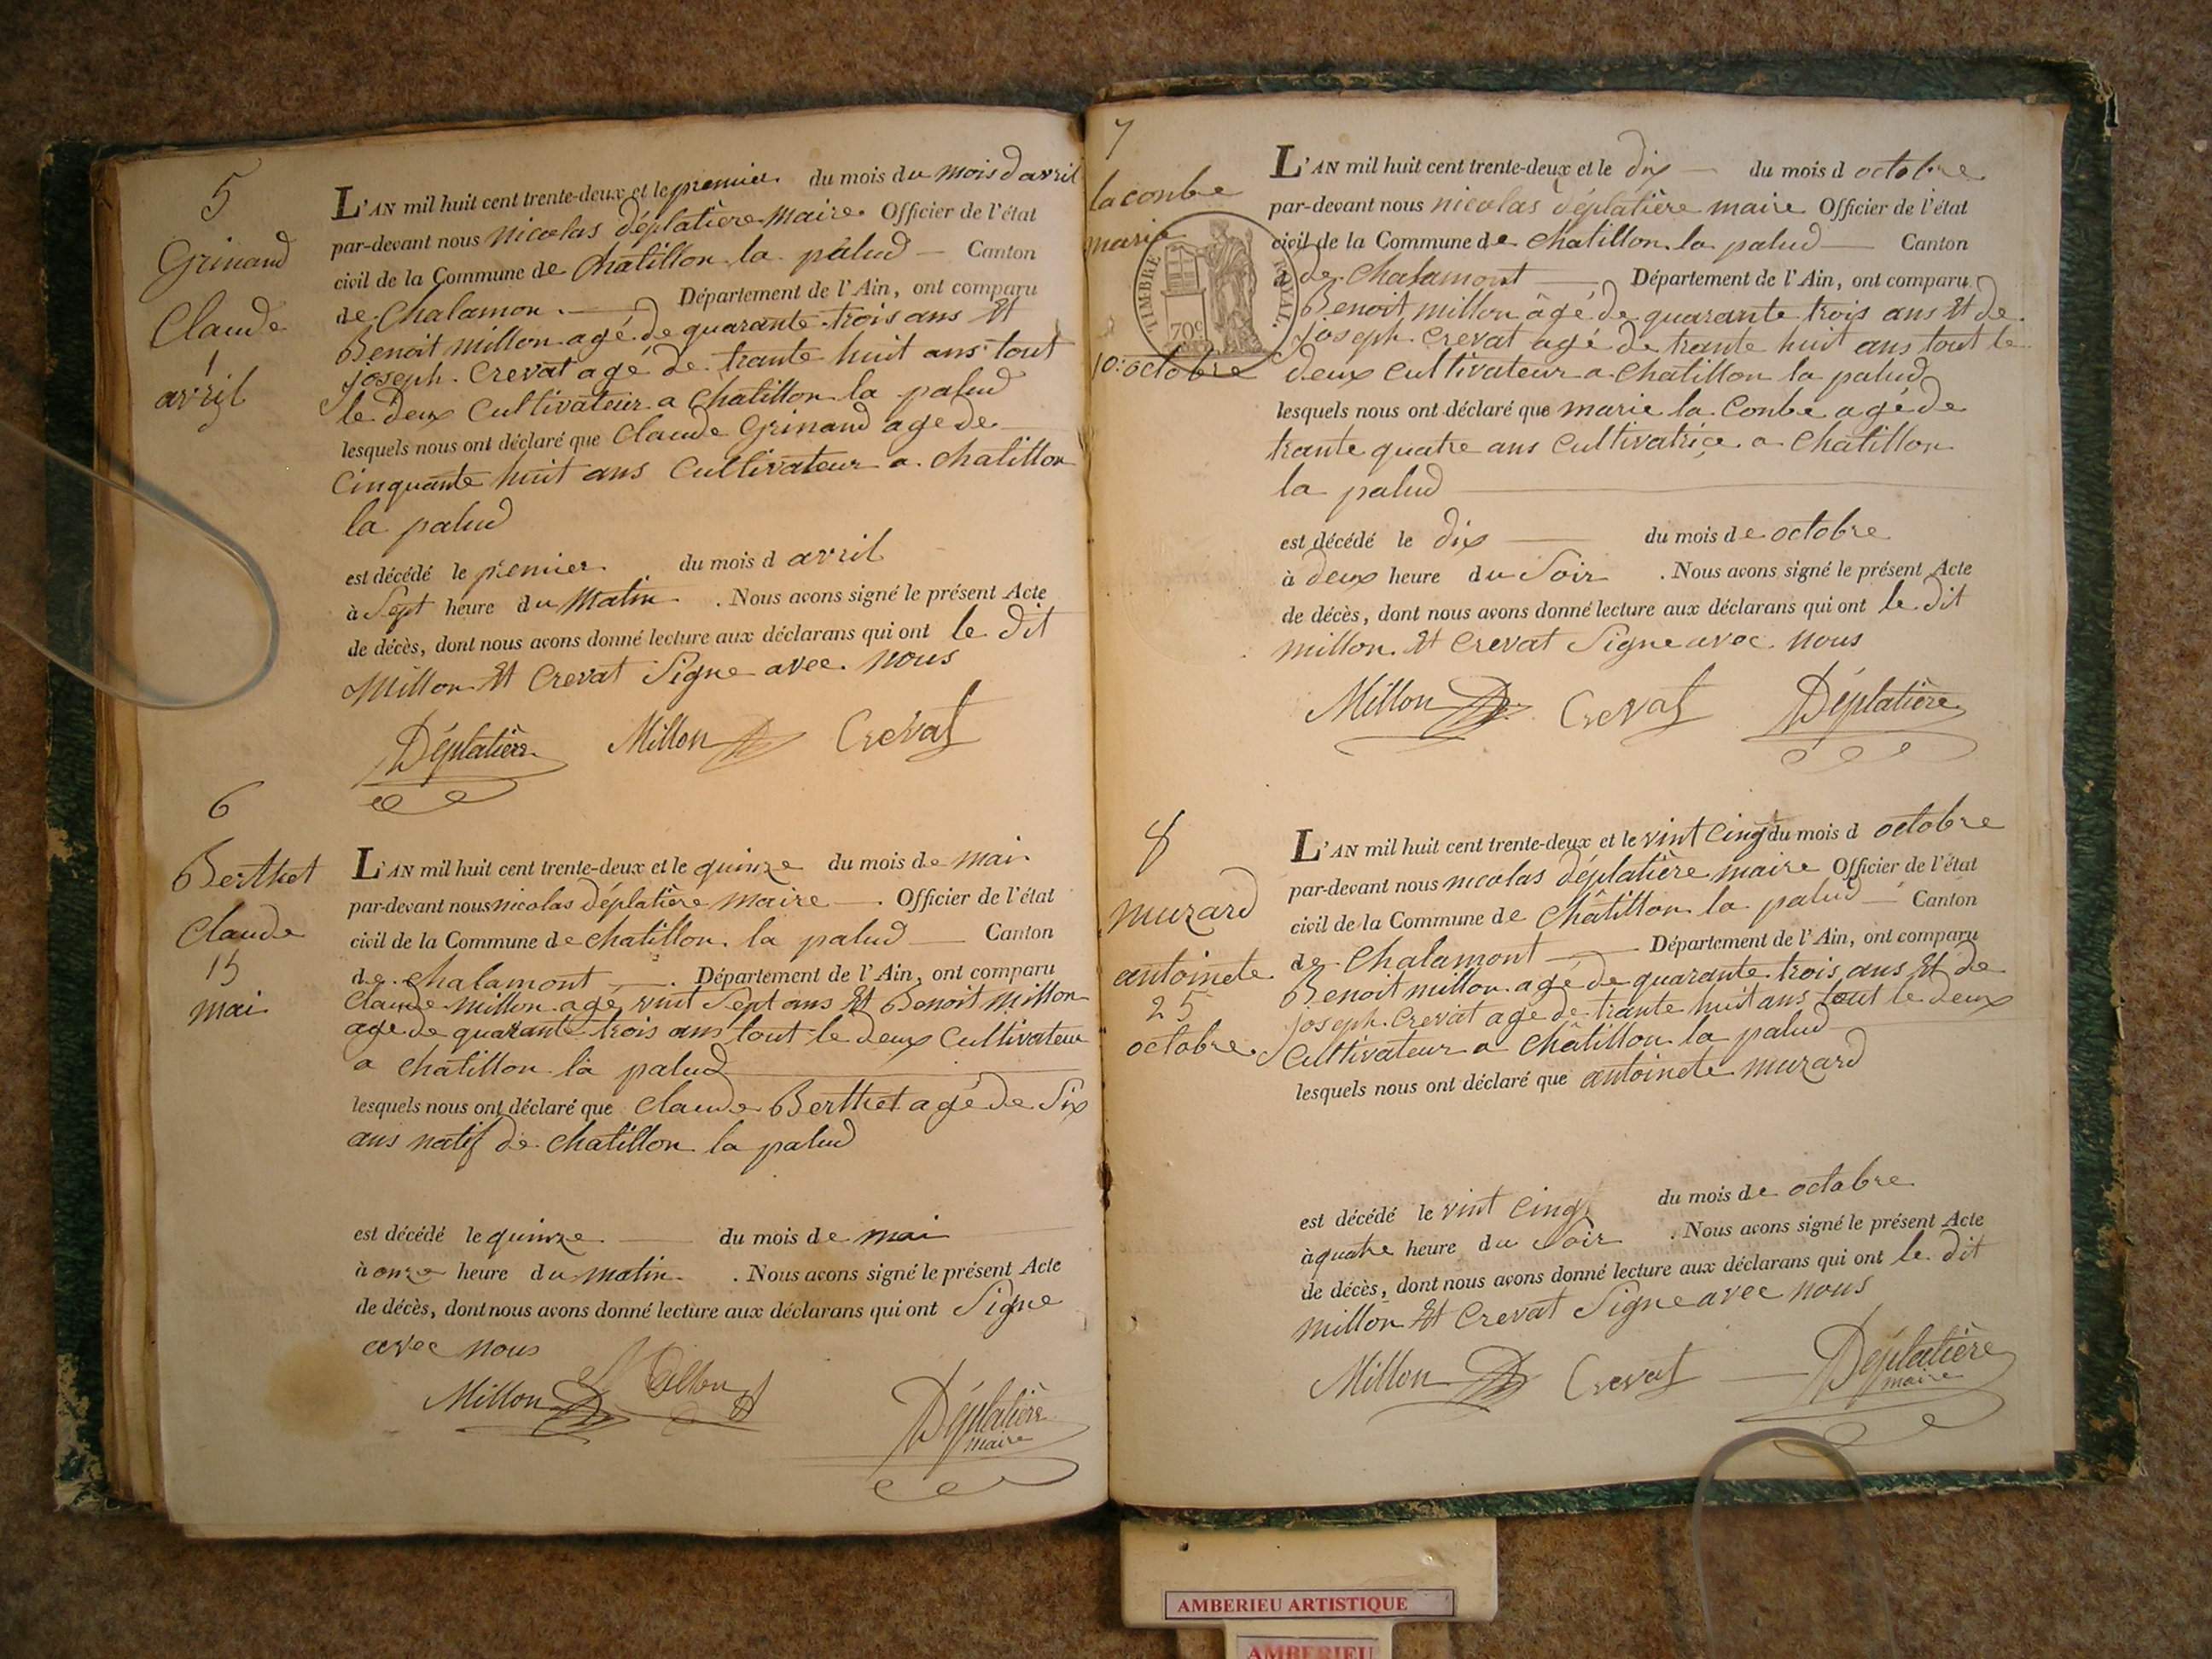 5
Grinand
Claude
1
avril
L'AN mil huit cent trente-deux et le premier du mois du mois d avril
par-devant nous nicolas déplatière maire Officier de l'état
civil de la Commune de Chatillon la palud Canton
de Chalamon Département de l'Ain, ont comparu
Benoit millon agé de quarante trois ans Et
joseph Crevat agé de trante huit ans tout
le deux Cultivateur a Chatillon la palud
lesquels nous ont déclaré que Claude Grinand age de
Cinquante huit ans Cultivateur a chatillon
la palud
est décédé le premier du mois d avril
à Sept heure du Matin . Nous avons signé le présent Acte
de décès, dont nous avons donné lecture aux déclarans qui ont le dit
Millon Et Crevat Signe avec nous
Déplatière Millon Crevat
6
Berthet
Claude
15
mai
L'AN mil huit cent trente-deux et le quinze du mois de mai
par-devant nous nicolas déplatière maire . Officier de l'état
civil de la Commune de chatillon la palud Canton
de chalamont . Département de l'Ain, ont comparu
Claude millon age vint Sept ans Et Benoit Millon
age de quarante trois ans tout le deux Cultivateur
a chatillon la palud
lesquels nous ont déclaré que Claude Berthet agé de Six
ans natif de chatillon la palud
est décédé le quinze du mois de mai
à onze heure du matin . Nous avons signé le présent Acte
de décès, dont nous avons donné lecture aux déclarans qui ont Signe
avec nous
Millon Millon Déplatière
maire
7
la conbe
marie
TIMBRE ROYAL.
70c
10 octobre
L'AN mil huit cent trente-deux et le dix du mois d octobre
par-devant nous nicolas déplatière maire Officier de l'état
civil de la Commune de Chatillon la palud Canton
de Chalamont Département de l'Ain, ont comparu
Benoit millon âgé de quarante trois ans Et de
joseph Crevat agé de trante huit ans tout le
deux Cultivateur a Chatillon la palud
lesquels nous ont déclaré que marie la Conbe agé de
trante quatre ans Cultivatrice a Chatillon
la palud
est décédé le dix du mois de octobre
à deux heure du Soir . Nous avons signé le présent Acte
de décès, dont nous avons donné lecture aux déclarans qui ont le dit
millon Et Crevat Signe avec nous
Millon Crevat Déplatière
8
muzard
antoinete
25
octobre
L'AN mil huit cent trente-deux et le vint Cinq du mois d octobre
par-devant nous nicolas déplatière maire Officier de l'état
civil de la Commune de Châtillon la palud Canton
de Chalamont Département de l'Ain, ont comparu
Benoit millon agé de quarante trois ans Et de
joseph Crevat age de trante huit ans tout le deux
Cultivateur a Châtillon la palud
lesquels nous ont déclaré que antoinete muzard
est décédé le vint Cinq du mois de octobre
à quatre heure du Soir . Nous avons signé le présent Acte
de décès, dont nous avons donné lecture aux déclarans qui ont le dit
millon Et Crevat Signe avec nous
Millon Crevat Déplatière
maire
AMBERIEU ARTISTIQUE
AMBERIEU